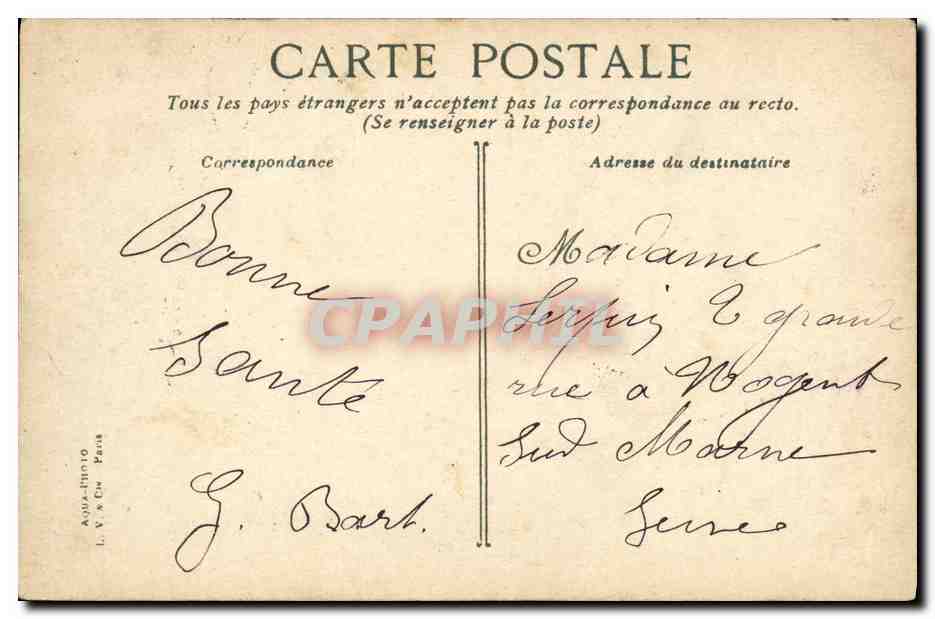 CARTE POSTALE
Tous les pays étrangers n'acceptent pas la correspondance au recto.
(Se renseigner à la poste)
Correspondance
Bonne
Santé
G. Bart.
Adresse du destinataire
Madame
2 grande
rue a Nogent
Sud Marne
Seine
CPAPHIL
AQUA-PHOTO
L. V. & Cie Paris